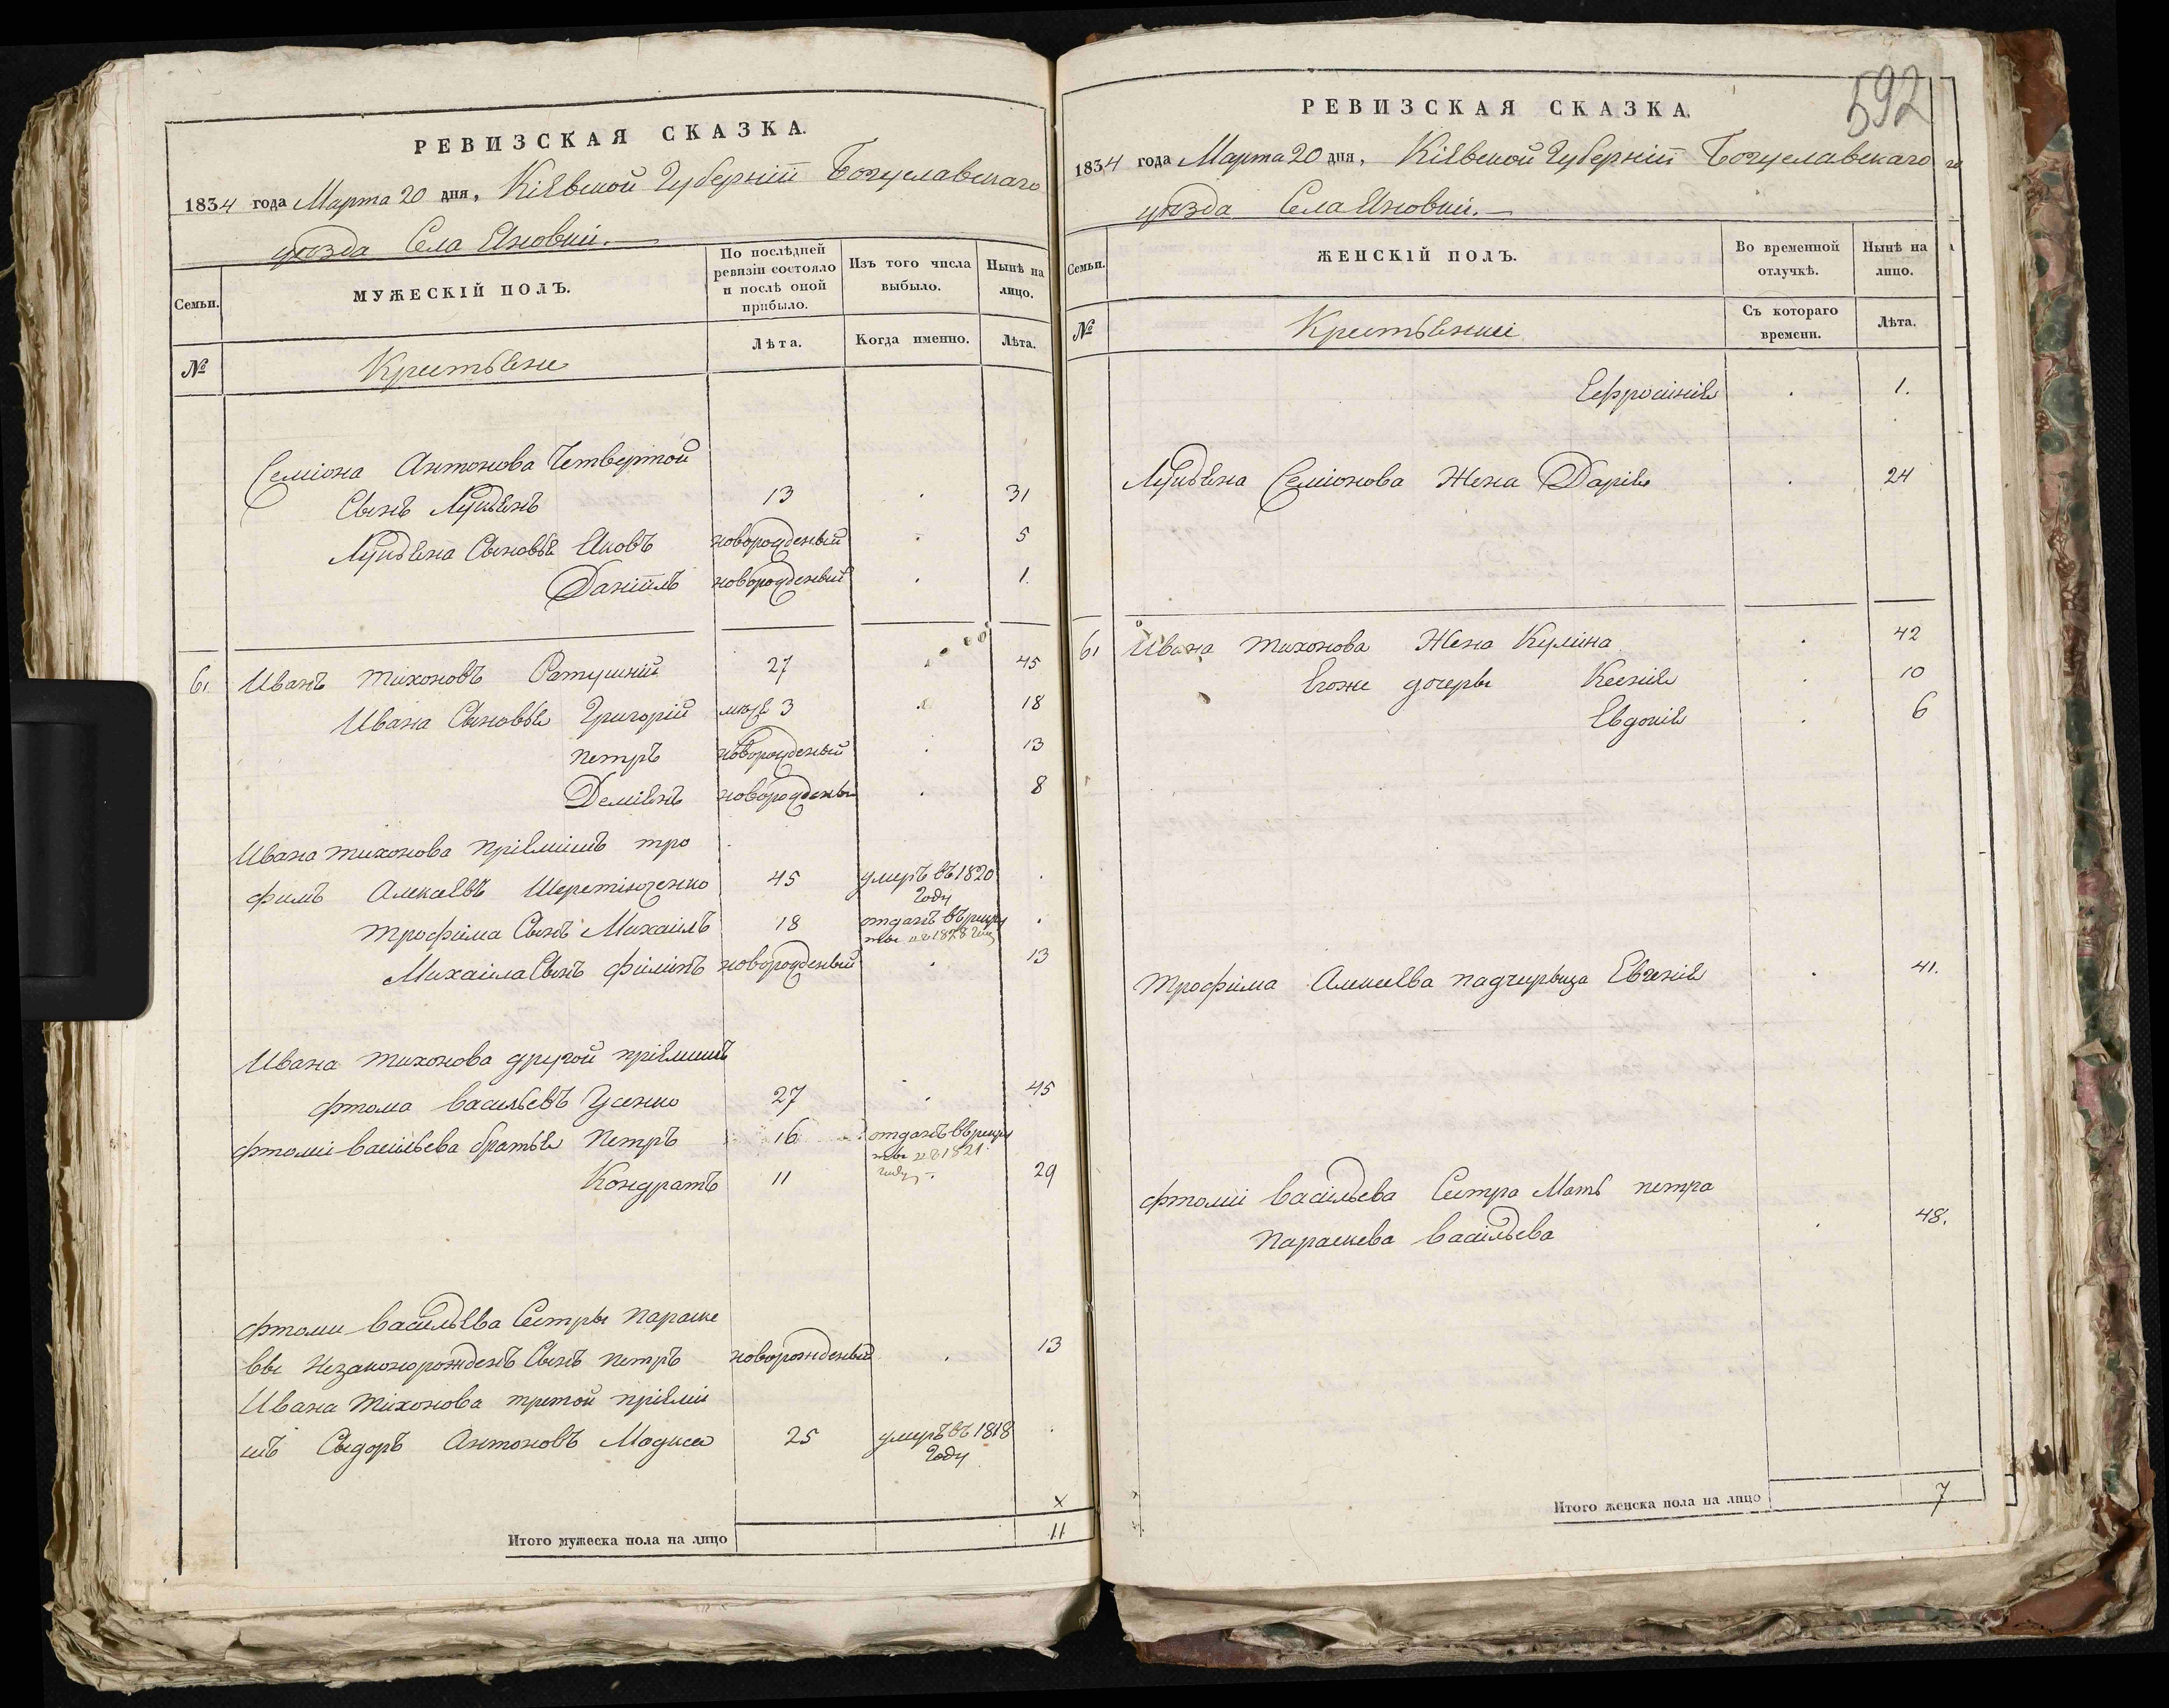 РЕВИЗСКАЯ СКАЗКА.
1834 года Марта 20 дня, Кіявской Губерніи Богуславскаго
уѣзда Села Яновки.
Семьи.
МУЖЕСКІЙ ПОЛЪ.
По послѣдней
ревизіи состояло
и послѣ оной
прибыло.
Изъ того числа
выбыло.
Нынѣ на
лицо.
№
Крестьяне
Лѣта.
Когда именно.
Лѣта.
Семіона Антонова Четвертой
Сынъ Лукьянъ 13 . 31
Лукьяна Сыновья Яковъ новорожденый . 5
Даніилъ новорожденый . 1.
61. Иванъ Тихоновъ Ратушній 27 . 45
Ивана Сыновья Григорій 3 . 18
Петръ новорожденый . 13
Деміянъ новорожденый . 8
Ивана Тихонова пріямишъ Тро
фимъ Алексѣевъ 45 умеръ въ 1820 .
Году
Трофима Сынъ Михаилъ 18 отданъ въ рекру .
ты въ 1828 году
Михаила Сынъ Філипъ новорожденый . 13
Ивана Тихонова другой пріямишъ
Фтома Васильевъ Усенко 27 . 45
Фтоми Васильева братья Петръ 16 отданъ въ рекру
ты въ 1821
Кондратъ 11 году . 29
Фтоми Васильева Сестры Параске
вы Незаконорожденъ Сынъ Петръ новорожденый . 13
Ивана Тихонова третой пріями
шъ Сыдоръ Антоновъ 25 умеръ въ 1818 .
Году
Итого мужеска пола на лицо 11
592
РЕВИЗСКАЯ СКАЗКА.
1834 года Марта 20 дня, Кіявской Губерніи Богуславскаго
уѣзда Села Яновки.
Семьи.
ЖЕНСКІЙ ПОЛЪ.
Во временной
отлучкѣ.
Нынѣ на
лицо.
№
Крестьянки
Съ котораго
времени.
Лѣта.
Ефросинія . 1.
Лукьяна Семіонова Жена Дарія . 24
61 Ивана Тихонова Жена Кулина . 42
Егоже дочеры Ксенія . 10
Евдокія . 6
Трофима Алексѣева падчерыца Евгенія . 41.
Фтоми Васильева Сестра Мать Петра
Параскева Васильева . 48.
Итого женска пола на лицо 7